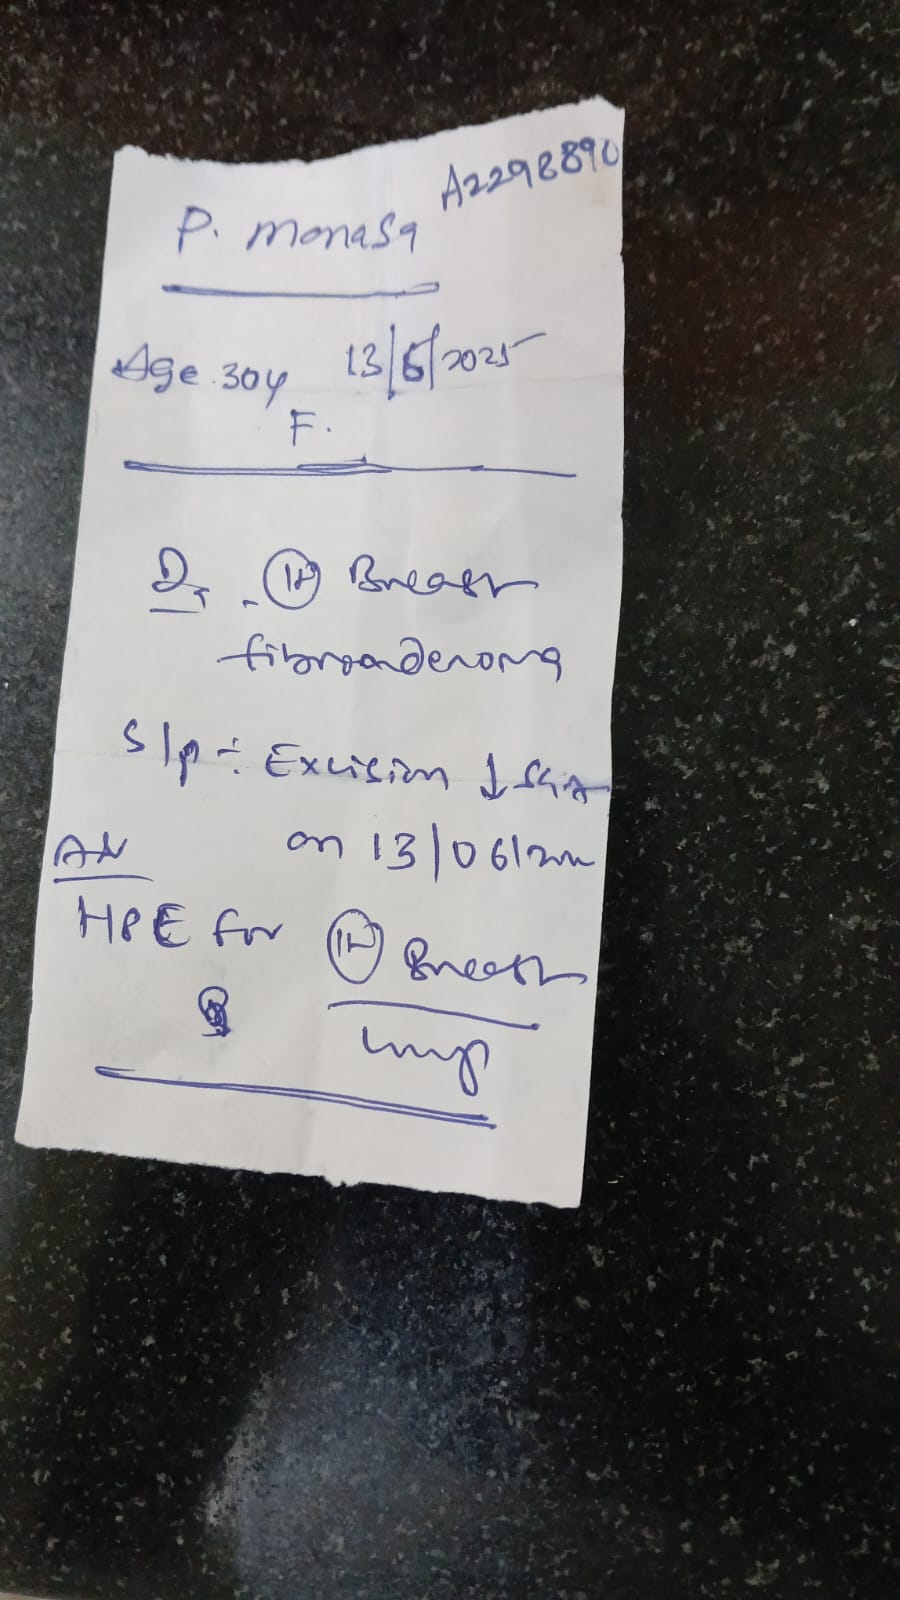 A2298890
P. Monasa
Age. 30y 13/6/2025
F.
D, - Breast
fibroadenoma
S/p ÷ Excision ↓
on 13/06/
HPE for Breast